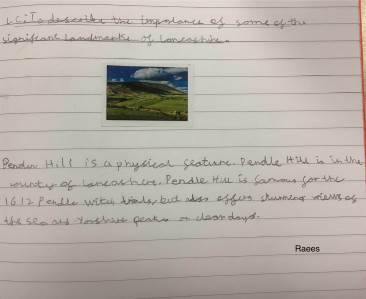 LC: To describe the importance of some of the
significant landmarks of Lancashire.
Pendle Hill is a physical feature. Pendle Hill is in the
county of Lancashire. Pendle Hill is famous for the
1612 Pendle witch trials, but also offers stunning views of
the sea and Yorkshire peaks on clear days.
Raees